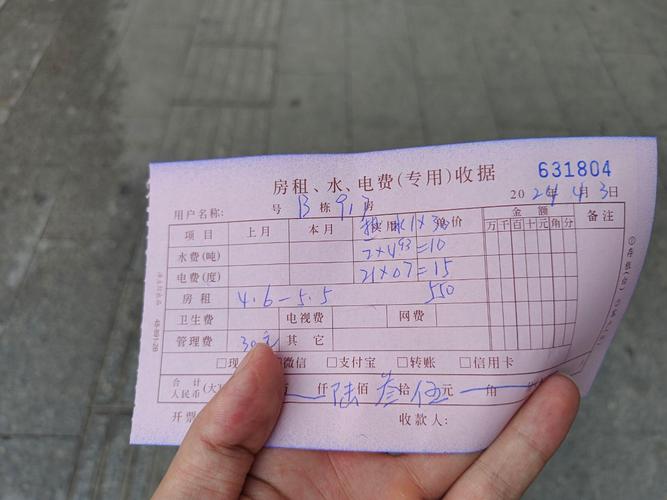 房租、水、电费(专用)收据 631804
用户名称: 号 B 栋 917 房 2024年4月3日
项目 上月 本月 实用 单价 金额 备注
水1×30
万千百十元角分
水费(吨) 2×4.93=10
电费(度) 21×0.7=15
房租 4.6-5.5 550
卫生费 电视费 网费
管理费 30元 其它
□现 □微信 □支付宝 □转账 □信用卡
合计
人民币(大 仟陆佰叁拾伍元 角
开票 收款人: